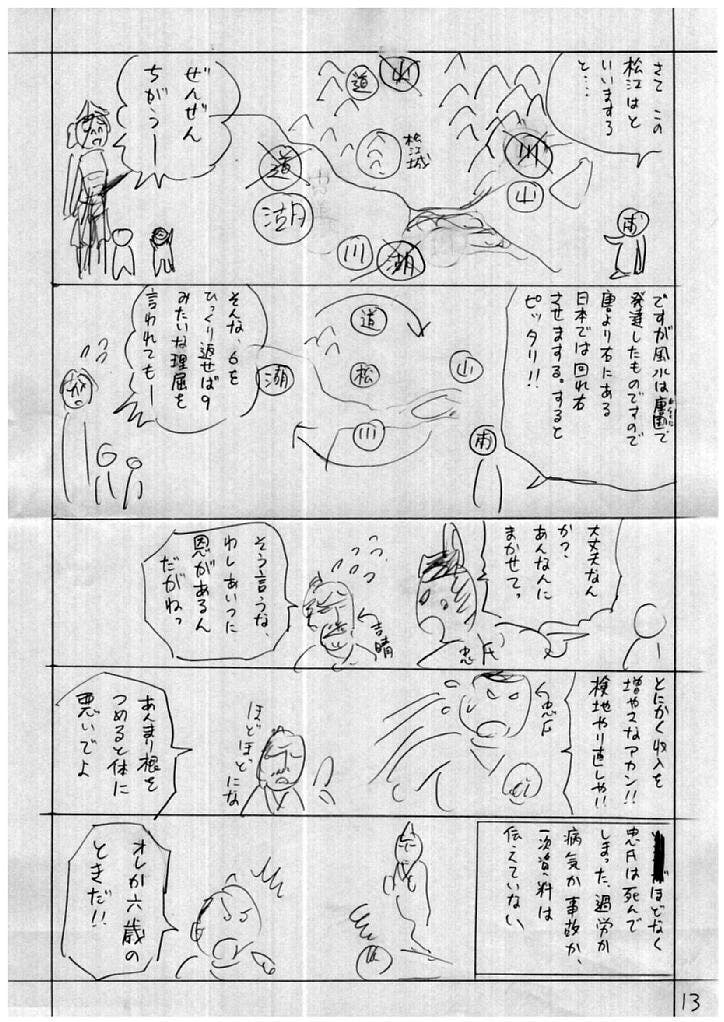 さて この
松江はと
いいまする
と…
川
山
山
道
松江城
甫
川
湖
道
湖
ぜんぜん
ちがうー
ですが風水は唐国で
発達したものですので
唐より右にある
日本では回れ右
させまする。すると
ピッタリ!!
甫
山
道
松
川
湖
そんな、6を
ひっくり返せば9
みたいな理屈を
言われてもー
大丈夫なん
か?、
あんなんに
まかせてっ
忠氏
吉晴
そう言うな、
わしあいつに
恩があるん
だがねっ
とにかく収入を
増やさなアカン!!
検地やり直しや!!
忠氏
ほどほどにな
あんまり根を
つめると体に
悪いでよ
ほどなく
忠氏は死んで
しまった、過労か
病気か事故か、
一次資料は
伝えていない、
オレが六歳の
ときだ!!
13